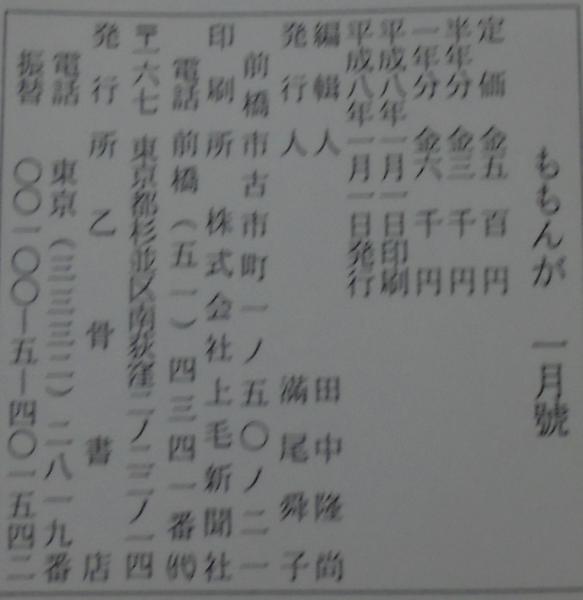 ももんが 一月號
定価 金五百円
半年分 金三千円
一年分 金六千円
平成八年一月一日印刷
平成八年一月一日発行
編輯人 田中隆尚
発行人 滿尾舜子
前橋市古市町一ノ五〇ノ二一
印刷所 株式会社上毛新聞社
電話 前橋(五一)四三四一番㈹
〒一六七 東京都杉並区南荻窪二ノ二三ノ一四
発行所 乙骨書店
電話 東京(三三三二)二八一九番
振替 〇〇一〇〇―五―四〇一五四二